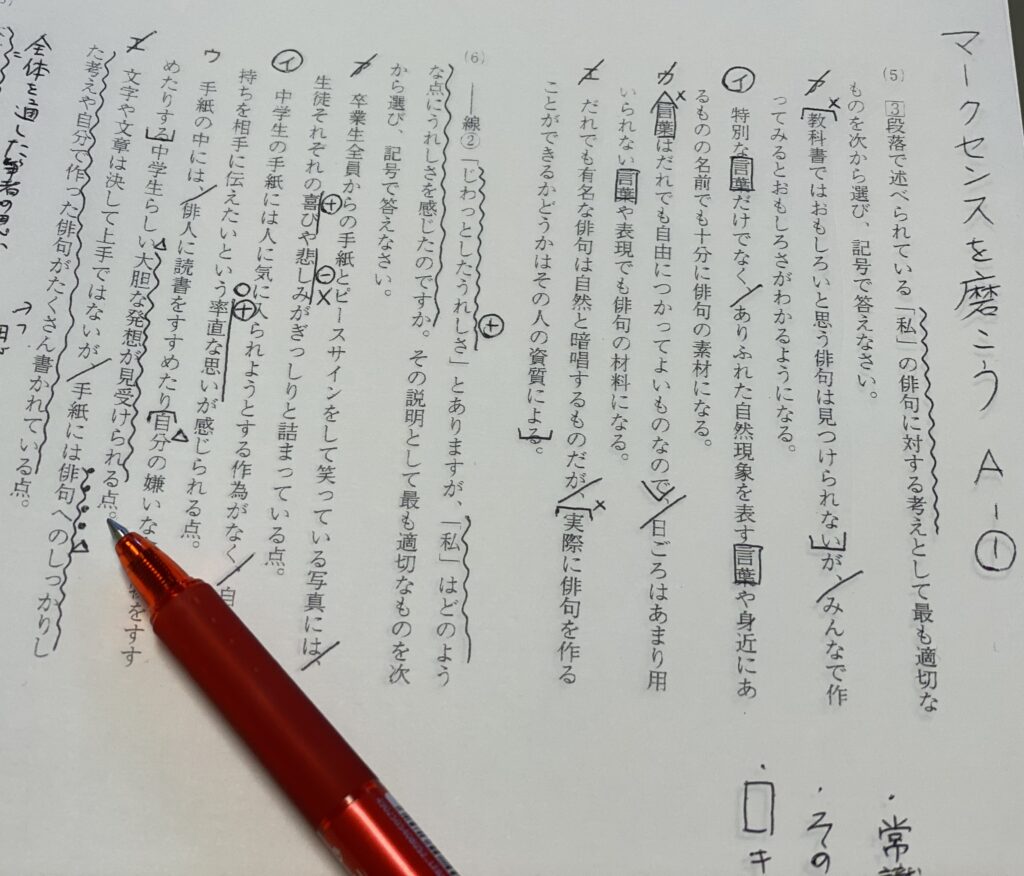 マークセンスを磨こう A-①
(5) 3段落で述べられている「私」の俳句に対する考えとして最も適切な
ものを次から選び、記号で答えなさい。
ア 教科書ではおもしろいと思う俳句は見つけられないが、みんなで作
ってみるとおもしろさがわかるようになる。
イ 特別な言葉だけでなく、ありふれた自然現象を表す言葉や身近にあ
るものの名前でも十分に俳句の素材になる。
ウ 言葉はだれでも自由につかってよいものなので、日ごろはあまり用
いられない言葉や表現でも俳句の材料になる。
エ だれでも有名な俳句は自然と暗唱するものだが、実際に俳句を作る
ことができるかどうかはその人の資質による。
(6) ――線②「じわっとしたうれしさ」とありますが、「私」はどのよう
な点にうれしさを感じたのですか。その説明として最も適切なものを次
から選び、記号で答えなさい。
ア 卒業生全員からの手紙とピースサインをして笑っている写真には、
生徒それぞれの喜びや悲しみがぎっしりと詰まっている点。
イ 中学生の手紙には人に気に入られようとする作為がなく、自
持ちを相手に伝えたいという率直な思いが感じられる点。
ウ 手紙の中には、俳人に読書をすすめたり自分の嫌いな をすす
めたりする中学生らしい大胆な発想が見受けられる点。
エ 文字や文章は決して上手ではないが、手紙には俳句へのしっかりし
た考えや自分で作った俳句がたくさん書かれている点。
全体を通した筆者の思い
・常識
・その
・□キ